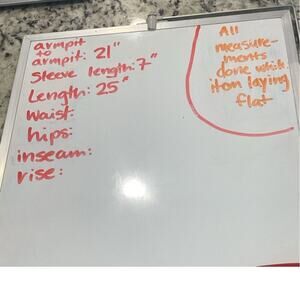 armpit
to
armpit: 21"
Sleeve length: 7"
Length: 25"
waist:
hips:
inseam:
rise:
All
measure-
ments
done while
item laying
flat